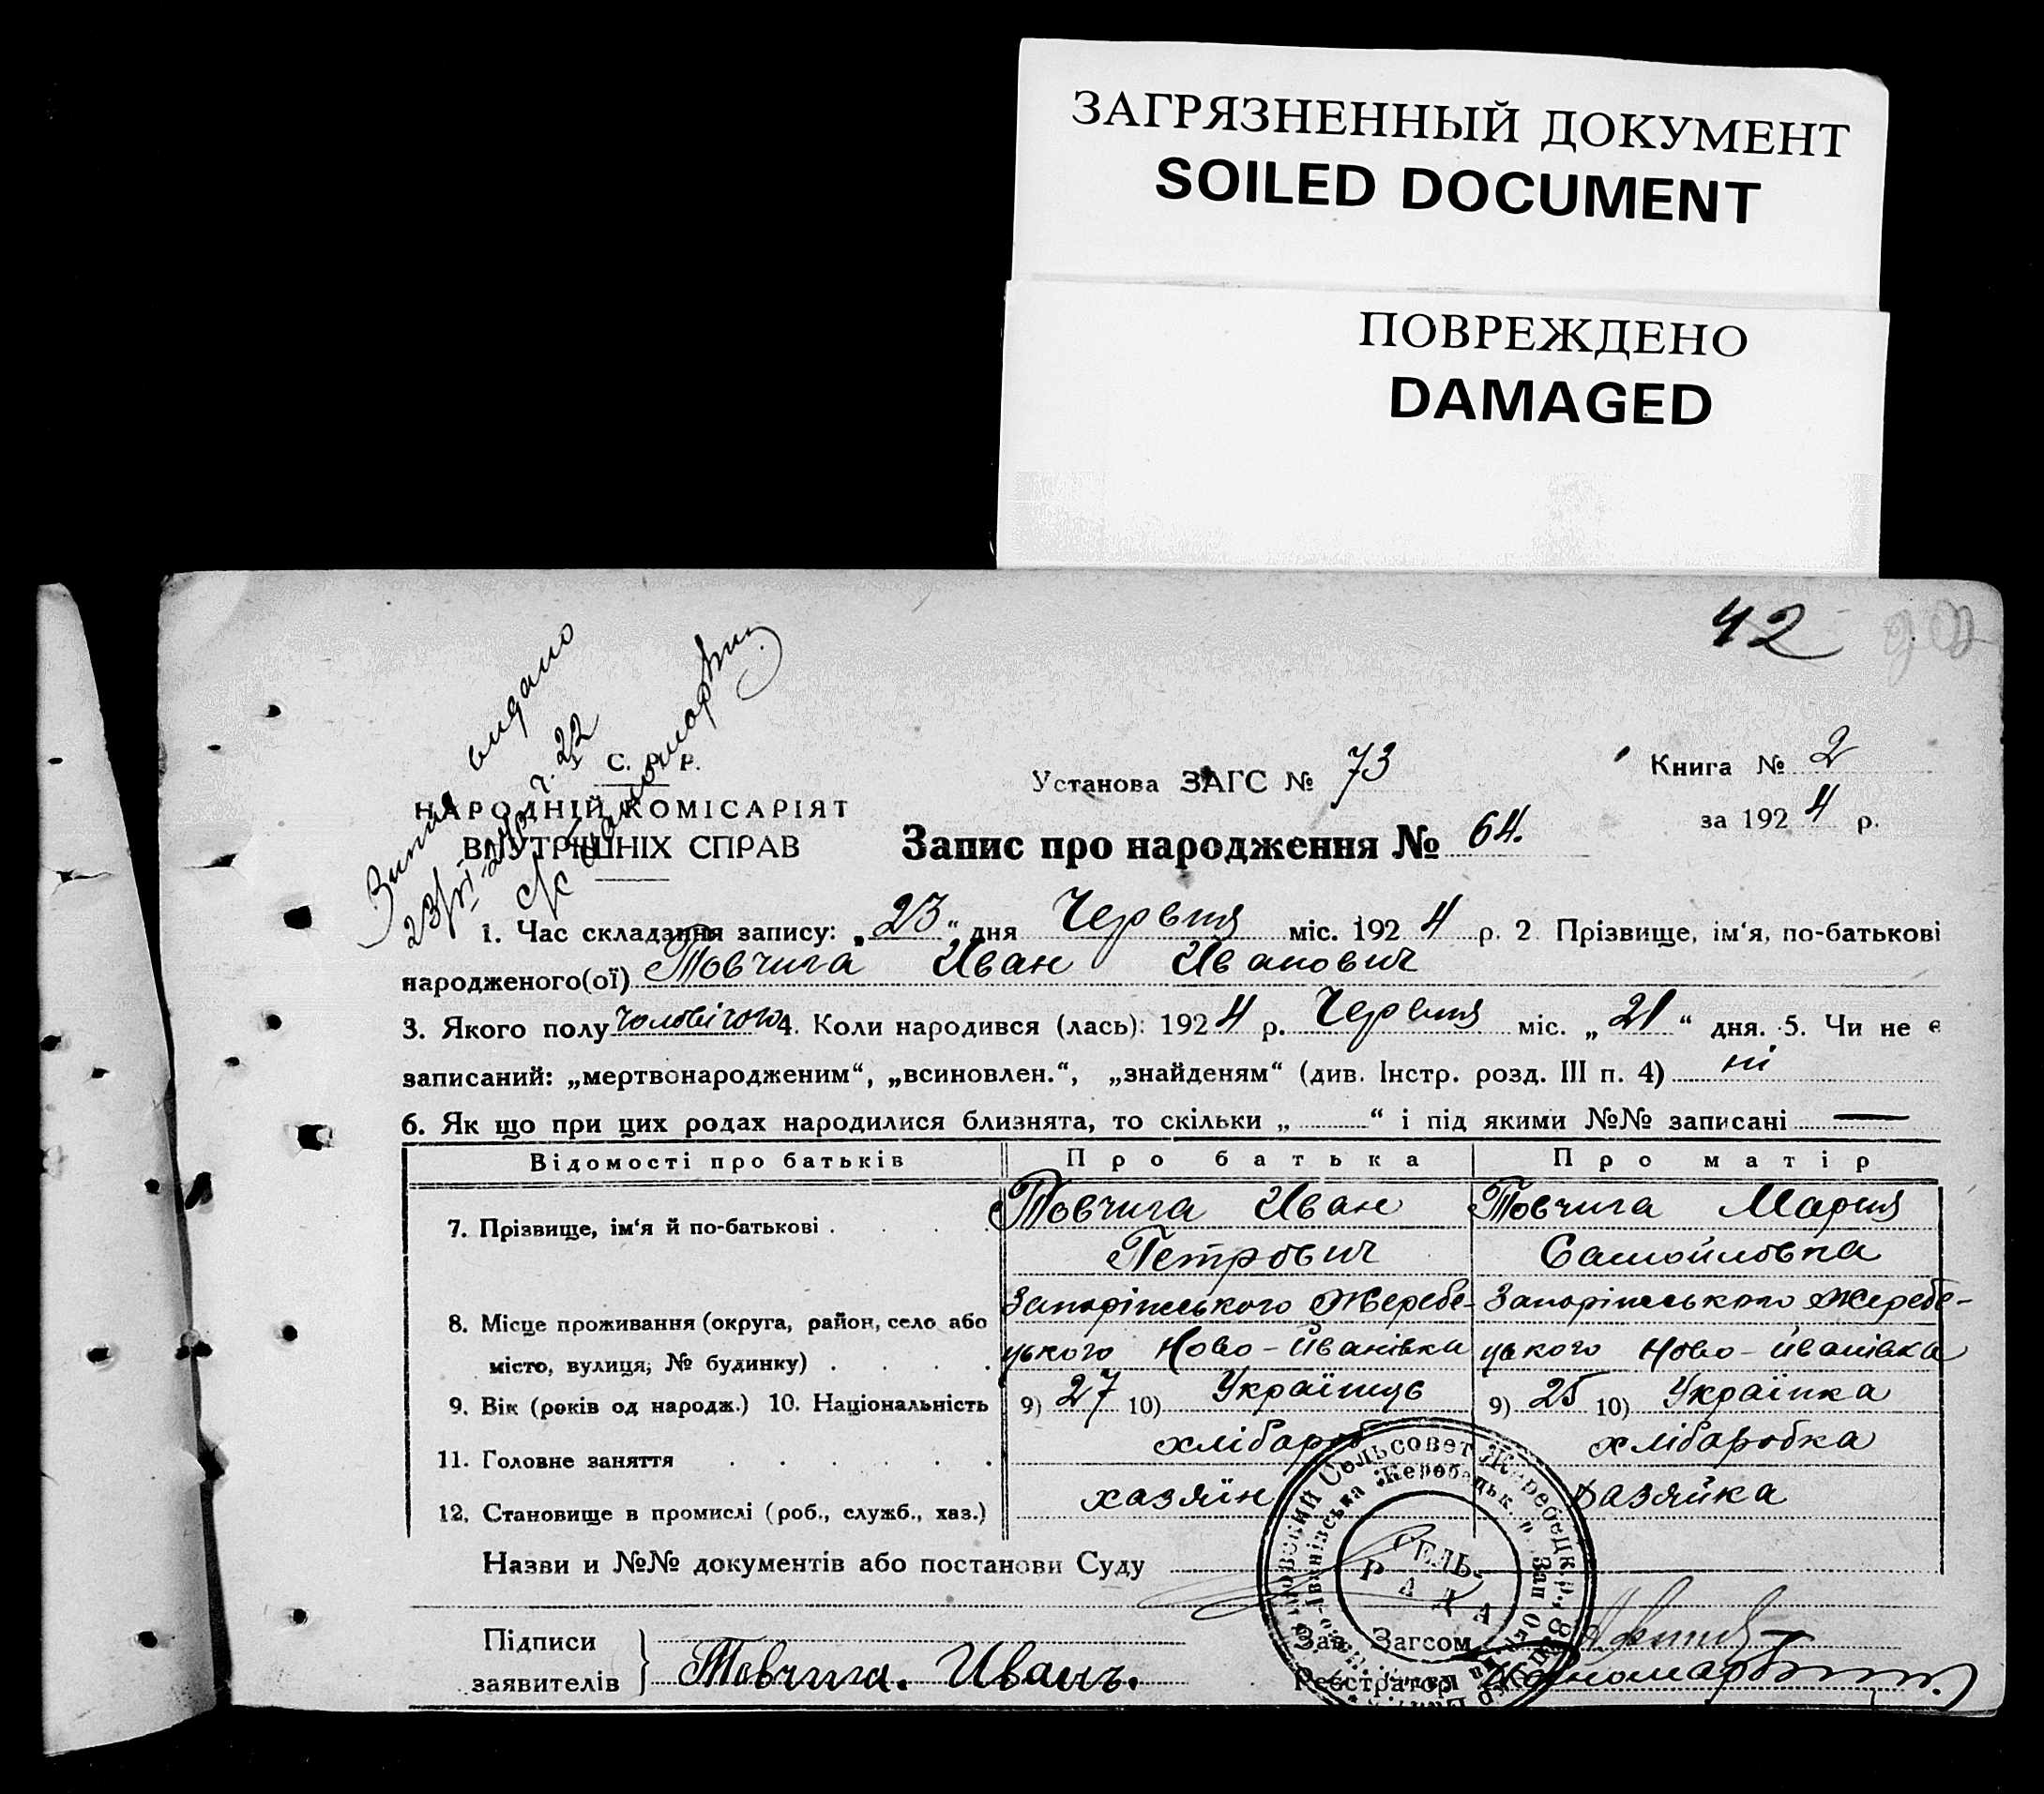 ЗАГРЯЗНЕННЫЙ ДОКУМЕНТ
SOILED DOCUMENT
ПОВРЕЖДЕНО
DAMAGED
42
видано
23/VI-24р. ч. 22
С. Р. Р.
НАРОДНІЙ КОМІСАРІЯТ
ВНУТРІШНІХ СПРАВ
Установа ЗАГС № 73
Книга № 2
за 1924 р.
Запис про народження № 64.
1. Час складання запису: „23“ дня Червня міс. 1924 р. 2 Прізвище, ім‘я, по-батькові
народженого(ої) Товчига Иван Иванович
3. Якого полу чоловічого 4. Коли народився (лась): 1924 р. Червня міс. „21“ дня. 5. Чи не є
записаний: „мертвонародженим“, „всиновлен.“, „знайденям“ (див. Інстр. розд. III п. 4) ні
6. Як що при цих родах народилися близнята, то скільки „ “ і під якими №№ записані —
Відомості про батьків Про батька Про матір
7. Прізвище, ім‘я й по-батькові Товчига Иван Товчига Мария
Петрович Самойловна
8. Місце проживання (округа, район, село або Запоріжського Жеребе- Запоріжського Жеребе-
місто, вулиця, № будинку) цького Ново-Иванівка цького Ново-Иванівка
9. Вік (років од народж.) 10. Національність 9) 27 10) Українць 9) 25 10) Українка
11. Головне заняття хлібароб хлібаробка
12. Становище в промислі (роб., служб., хаз.) хазяїн хазяйка
Назви и №№ документів або постанови Суду
СЕЛЬ-
РАДА
Підписи Зав. Загсом
заявителів Товчига. Иванъ. Реєстратор